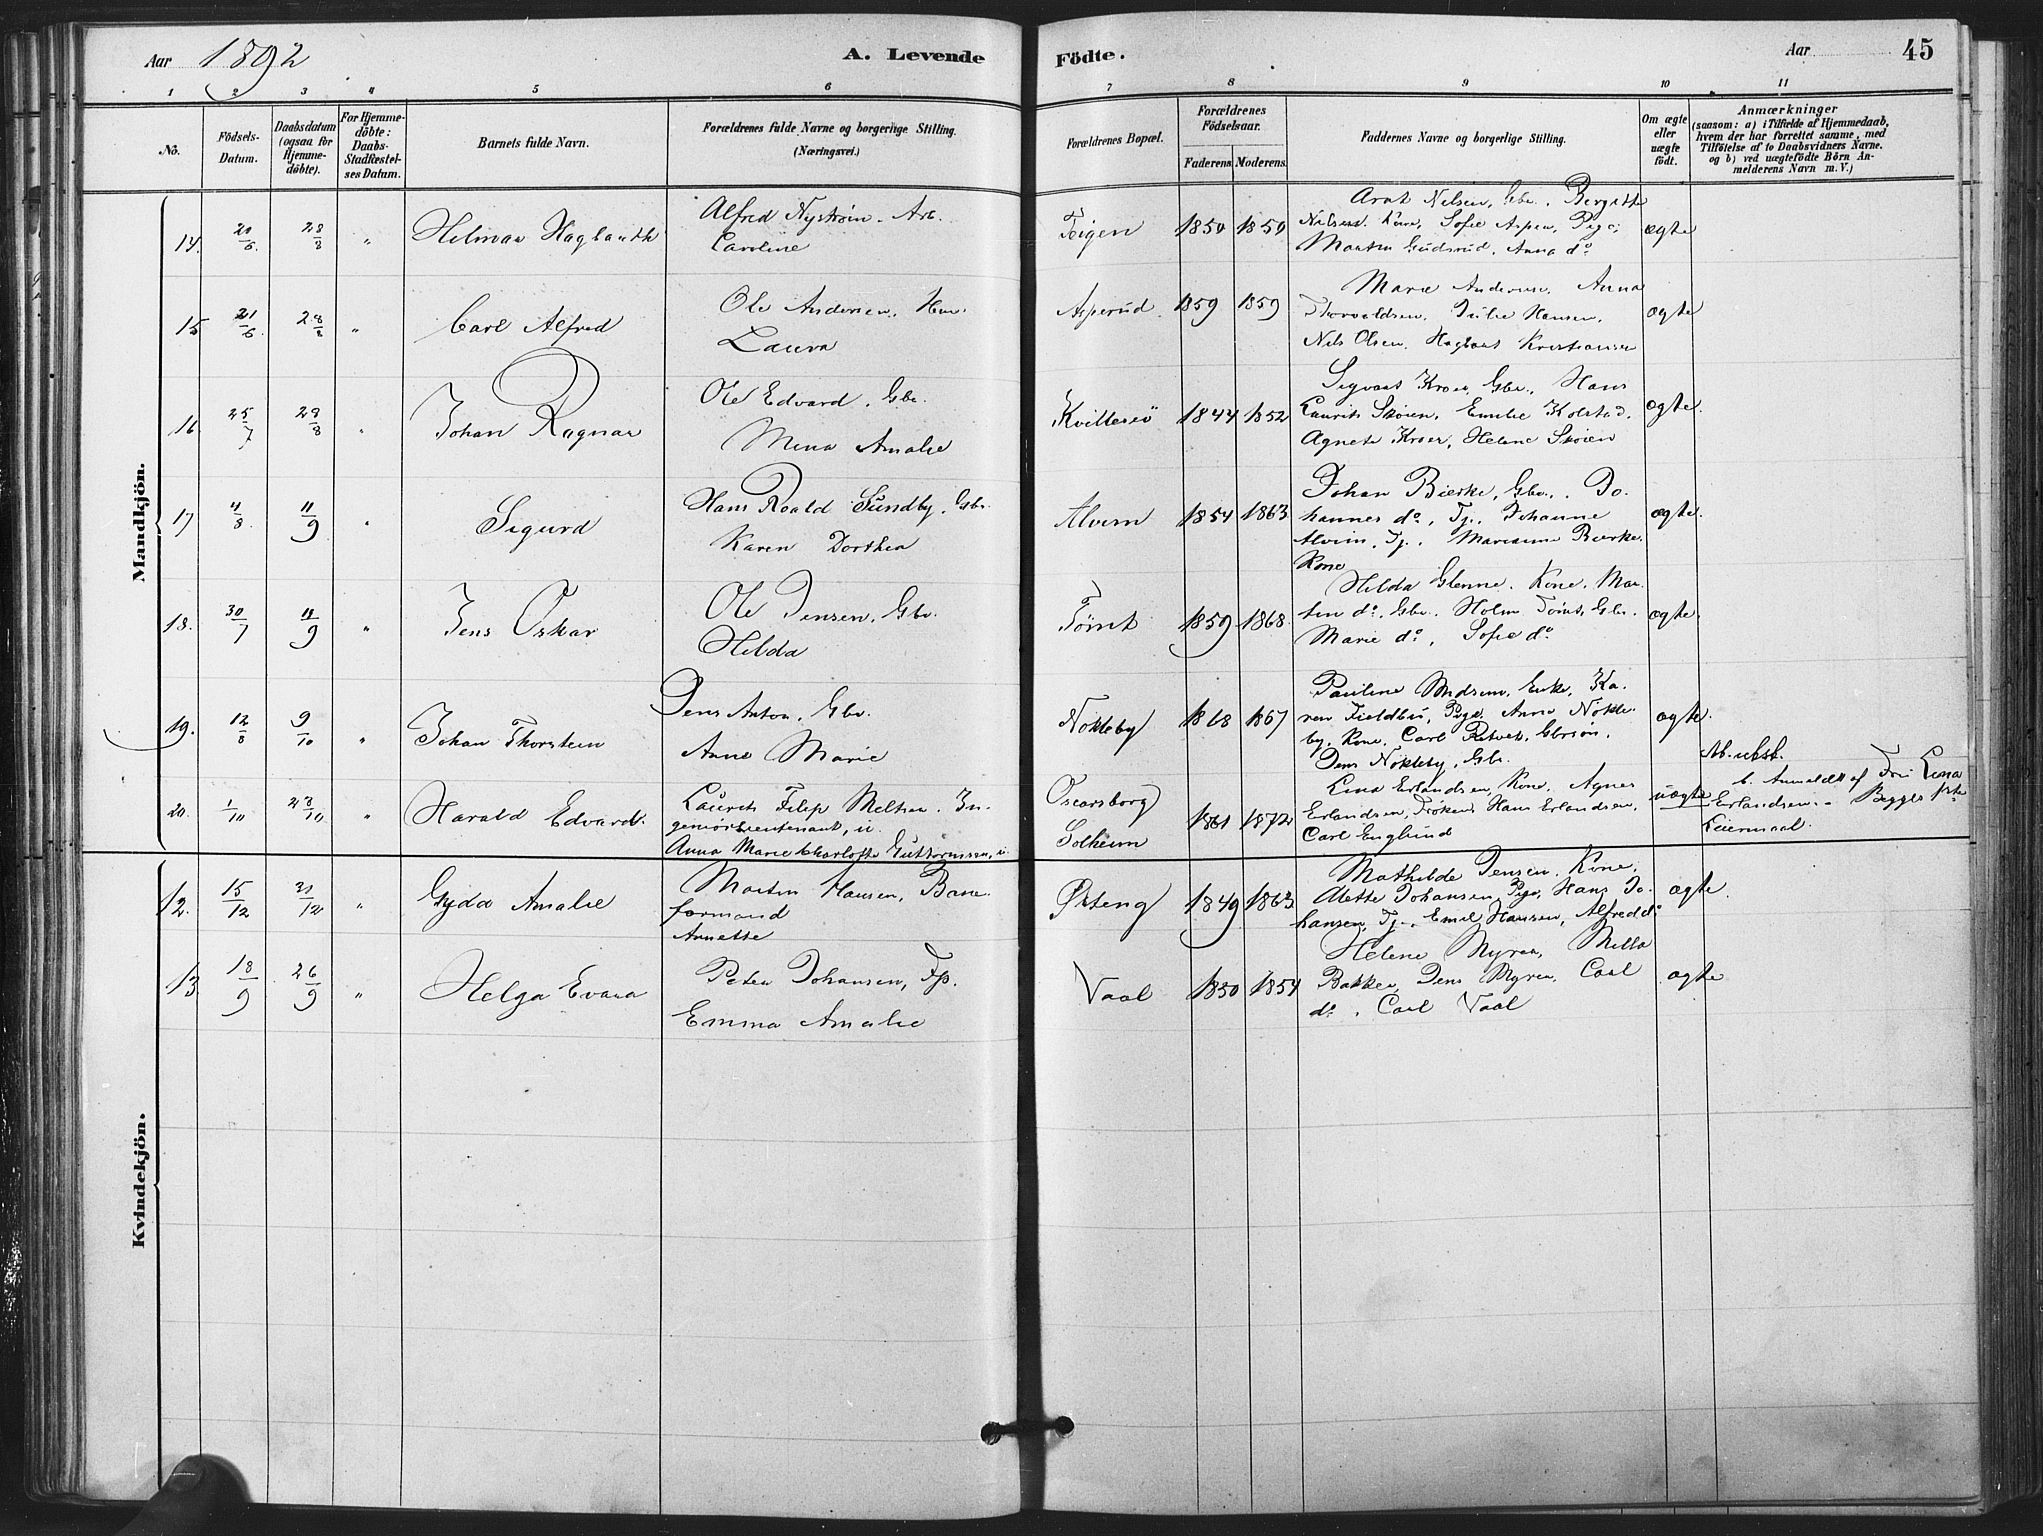 Aar 1892
A. Levende
Födte.
Aar
45
1 2 3 4 5 6 7 8 9 10 11
No.
Födsels-
Datum.
Daabsdatum
(ogsaa for
Hjemme-
döbte).
For Hjemme-
döbte:
Daabs-
Stadfestel-
ses Datum.
Barnets fulde Navn.
Forældrenes fulde Navne og borgerlige Stilling.
(Næringsvei.)
Forældrenes Bopæl.
Forældrenes
Födselsaar.
Faderens.
Moderens.
Faddernes Navne og borgerlige Stilling.
Om ægte
eller
uægte
født.
Anmærkninger
(saasom: a) i Tilfælde af Hjemmedaab,
hvem der har forrettet samme, med
Tilföielse af to Daabsvidners Navne.
og b) ved uægtefödte Börn An-
melderens Navn m. V.)
Mandkjön.
14. 20/6 28/8 " Hilmar Hagbarth
Alfred Nyström. Arb.
Caroline
Teigen 1850 1859
Nielsen, Gbr. Bergitte
Nielsen, Kone, Sofie Aspen, Pige,
Martin Gudsrud, Anna do
ægte
15 21/6 28/8 " Carl Alfred
Ole Andersen, Hm.
Laura
Asperud 1859 1859
Marie Andersen, Anna
Thorvaldsen, Julie Hansen,
Nils Olsen, Hagbart Kristiansen
ægte
16 25/7 28/8 " Johan Ragnar
Ole Edvard, Gbr.
Mina Amalie
1844 1852
Sigvart Kroer, Gbr., Hans
Laurits Skoien, Emilie Kolstad,
Agnete Kroer, Helene Skoien
ægte.
17 4/8 11/9 " Sigurd
Hans Roald Sundby, Gbr.
Karen Dorthea
Alvim 1854 1863
Johan Bierke, Gbr., Jo-
hannes do, Tj., Johanne
Alvim, Tj., Marianne Bierke.
Kone
ægte.
18. 30/7 11/9 " Jens Oskar
Ole Jensen, Gbr.
Hilda
Tømt 1859 1868
Hilda Glenne, Kone, Mar-
tin do, Gbr. Holm Tømt, Gbr.
Marie do, Sofie do
ægte.
19. 12/8 9/10 " Johan Thorstein
Jens Anton, Gbr.
Anne Marie
Nokleby 1868 1867
Pauline Enke, Ka-
ren Fieldbu, Pige, Anne Nokle-
by, Kone, Carl
Jens Nokleby, Gbr.
ægte.
20. 1/10 23/10 " Harald Edvard.
Laurits Filip In-
geniørlieutenant, u.
Anna Marie Charlotte Guttormsen, u.
Oscarsborg
Solheim 1861 1872
Lina Erlandsen, Kone, Agnes
Erlandsen, Frøken, Hans Erlandsen,
Carl Englund
uægte
b. Anmeldt af Fru Lina
Erlandsen. Begges 1ste
Leiermaal.
Kvindekjön.
12. 15/12 31/12 " Gyda Amalie
Martin Hansen, Bane-
formand
Annette
Østeng 1849 1863
Mathilde Jensen, Kone,
Alette Johansen, Pige, Hans Jo-
hansen, Tj., Emil Hansen, Alfred do
ægte.
13 18/9 26/9 " Helga Evara
Peter Johansen, Fp.
Emma Amalie
Vaal 1850 1854
Helene Myrer, Milla
Bakker, Jens Myrer, Carl
do, Carl Vaal
ægte